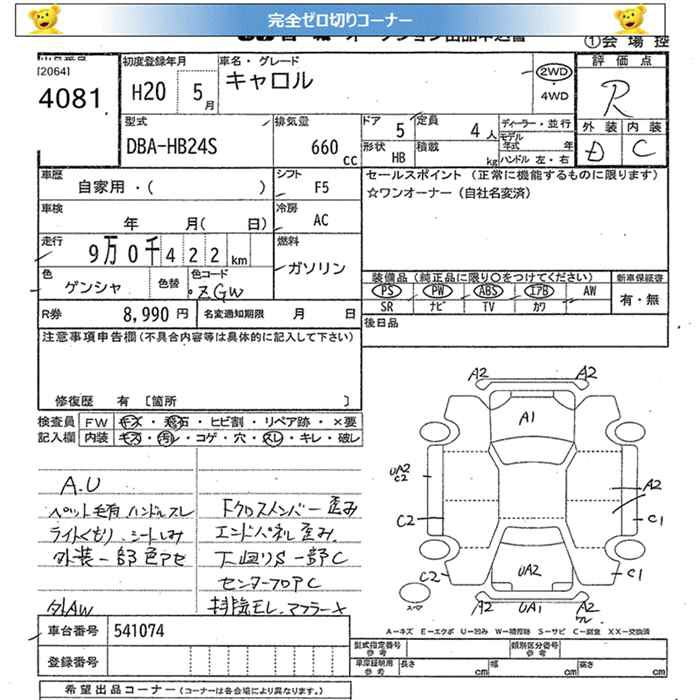 完全ゼロ切りコーナー
①会場控
[2064]
4081
初度登録年月
H20 5月
車名・グレード
キャロル
2WD
・
4WD
評価点
R
外装 内装
D C
型式
DBA-HB24S
排気量
660 cc
ドア 5
定員 4人
形状 HB
積載 kg
ディーラー・並行
モデル年式 年
ハンドル 左・右
車歴
自家用・( )
シフト F5
セールスポイント (正常に機能するものに限ります)
☆ワンオーナー(自社名変済)
車検
年 月( 日)
冷房 AC
走行
9万0千422km
燃料
ガソリン
色
ゲンシャ
色替
色コード
ZGW
装備品(純正品に限り〇をつけてください)
新車保証書
PS PW ABS エアB AW
SR ナビ TV カワ
有・無
R券 8,990円
名変通知期限 月 日
後日品
注意事項申告欄(不具合内容等は具体的に記入して下さい)
修復歴 有 [箇所 ]
検査員記入欄
FW キズ・飛石・ヒビ割・リペア跡・×要
内装 キズ・汚レ・コゲ・穴・スレ・キレ・破レ
A.U
ペット毛有 ハンドルスレ
ライトくもり、シートしみ
外装一部色アセ
外AW
Fクロスメンバー歪み
エンドパネル歪み
下廻りS一部C
センターフロアC
排気モレ、マフラー×
A2 A2
A1
UA2
C2
A2
C2 C1
C2 C1
UA2
スペア
A2 UA1 A2
A-キズ E-エクボ U-凹み W-補修跡 S-サビ C-腐食 XX-交換済
車台番号 541074
登録番号
型式指定番号
参考
類別区分番号
参考
車庫証明用
参考
長さ cm 幅 cm 高さ cm
希望出品コーナー(コーナーは各会場により異なります。)